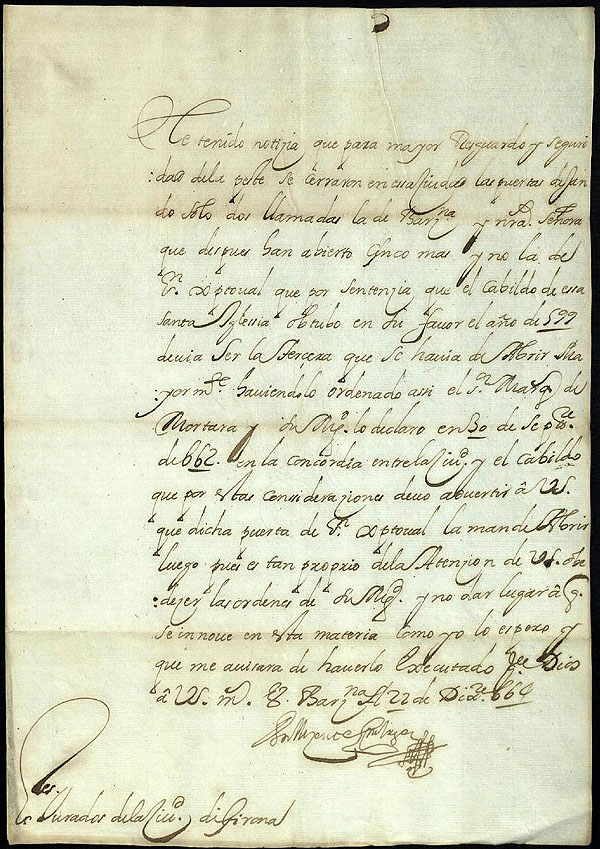 He tenido notizia que para mayor Resguardo y seguri
:dad de la peste se cerraron en essa Ciudad las puertas dejan
do solo dos llamadas la de Barz.na y nra. Señora
que despues han abierto Cinco mas y no la de
S.n Xptoval que por sentenzia que el Cabildo de essa
santa Yglessia obtubo en su favor el año de 599
devia Ser la terçera que se havia de Abrir Ma
:yor m.te haviendolo ordenado assi el s.r Marq.s de
Mortara y su Mag.d lo declaro en 30 de Sept.re
de 662. en la concordia entre la Ciu.d y el Cabildo
que por estas consideraziones devo advertir â VS.
que dicha puerta de S.n Xptoval la mande Abrir
luego pues es tan proprio de la Atenzion de VS. obe
:dezer las ordenes de su Mag.d y no dar lugar â q.
se innove en esta materia como yo lo espero y
que me avisara de haverlo Executado g.e Dios
â VS. m. a. Barz.na A 22 de Diz.re 664
Jurados de la Ciu.d de Girona